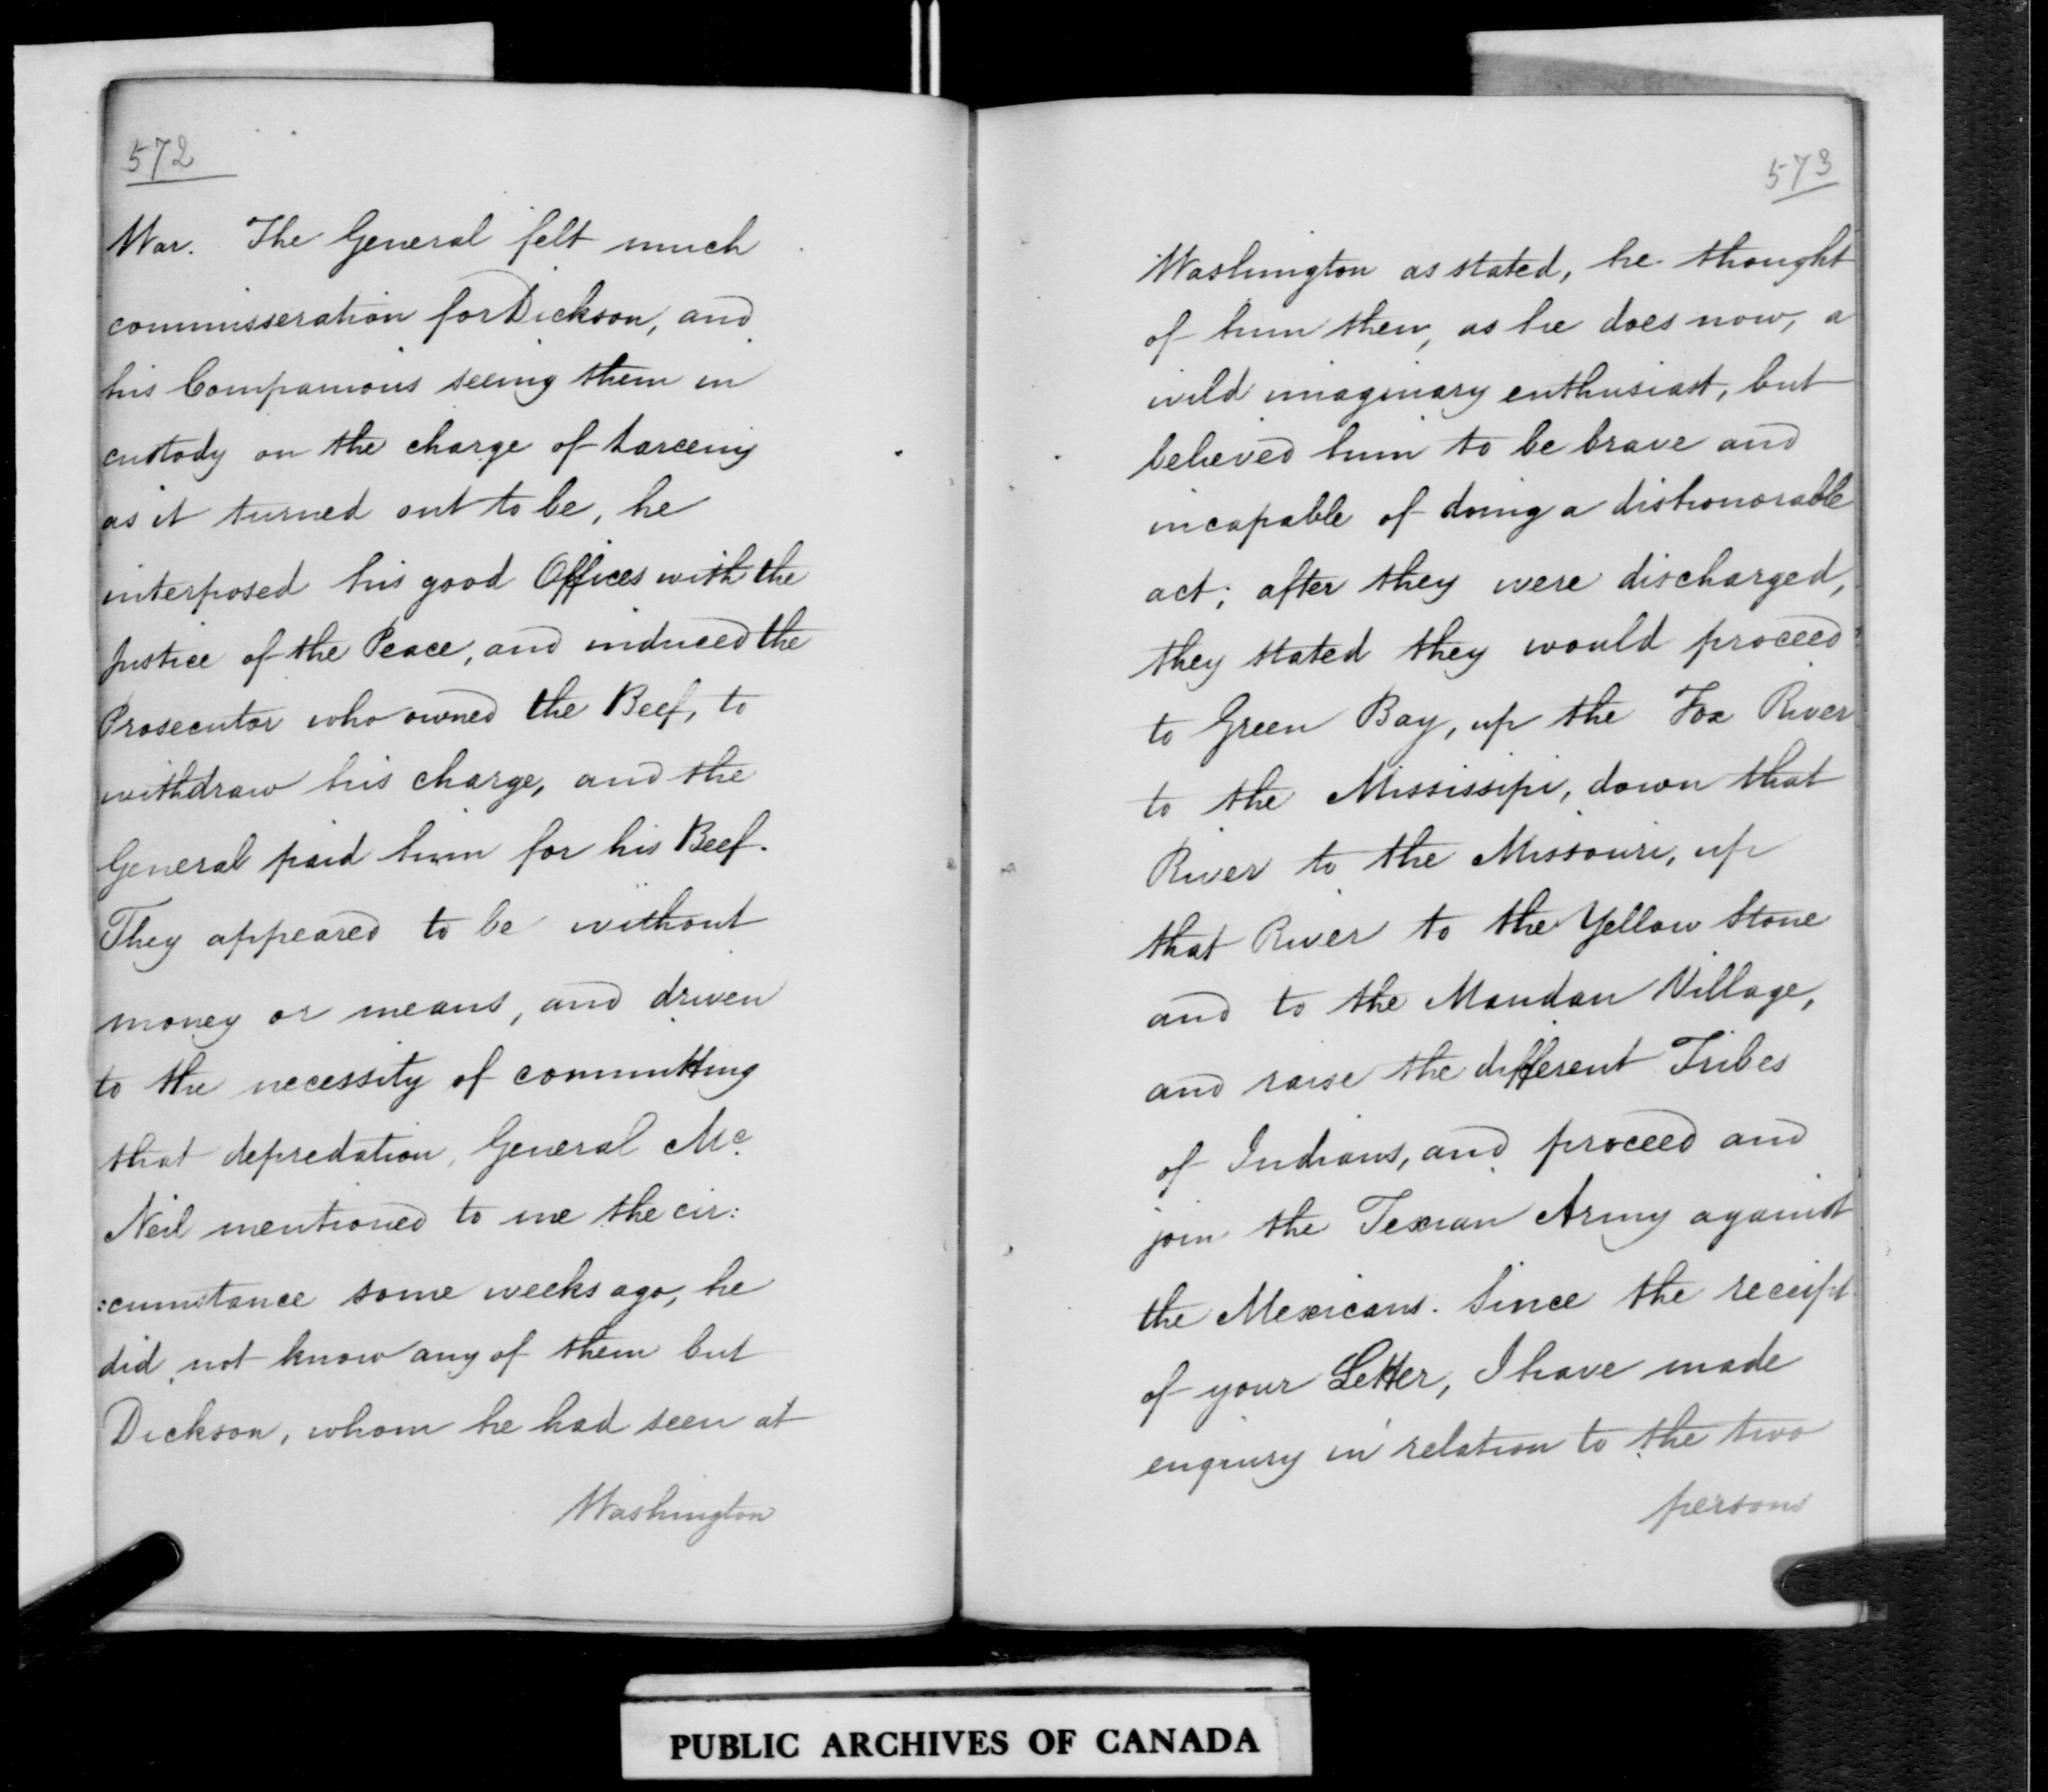 572
War. The General felt much
commisseration for Dickson, and
his Companions seeing them in
custody on the charge of Larceny
as it turned out to be, he
interposed his good Offices with the
Justice of the Peace, and induced the
Prosecutor who owned the Beef, to
withdraw his charge, and the
General paid him for his Beef.
They appeared to be without
money or means, and driven
to the necessity of committing
that depredation, General Mc.
Neil mentioned to me the cir:
:cumstance some weeks ago, he
did not know any of them but
Dickson, whom he had seen at
Washington
573
Washington as stated, he thought
of him then, as he does now, a
wild imaginary enthusiast, but
believed him to be brave and
incapable of doing a dishonorable
act; after they were discharged,
they stated they would proceed
to Green Bay, up the Fox River
to the Mississipi, down that
River to the Missouri, up
that River to the Yellow Stone
and to the Mandan Village,
and raise the different Tribes
of Indians, and proceed and
join the Texian Army against
the Mexicans. Since the receipt
of your Letter, I have made
enquiry in relation to the two
persons
PUBLIC ARCHIVES OF CANADA